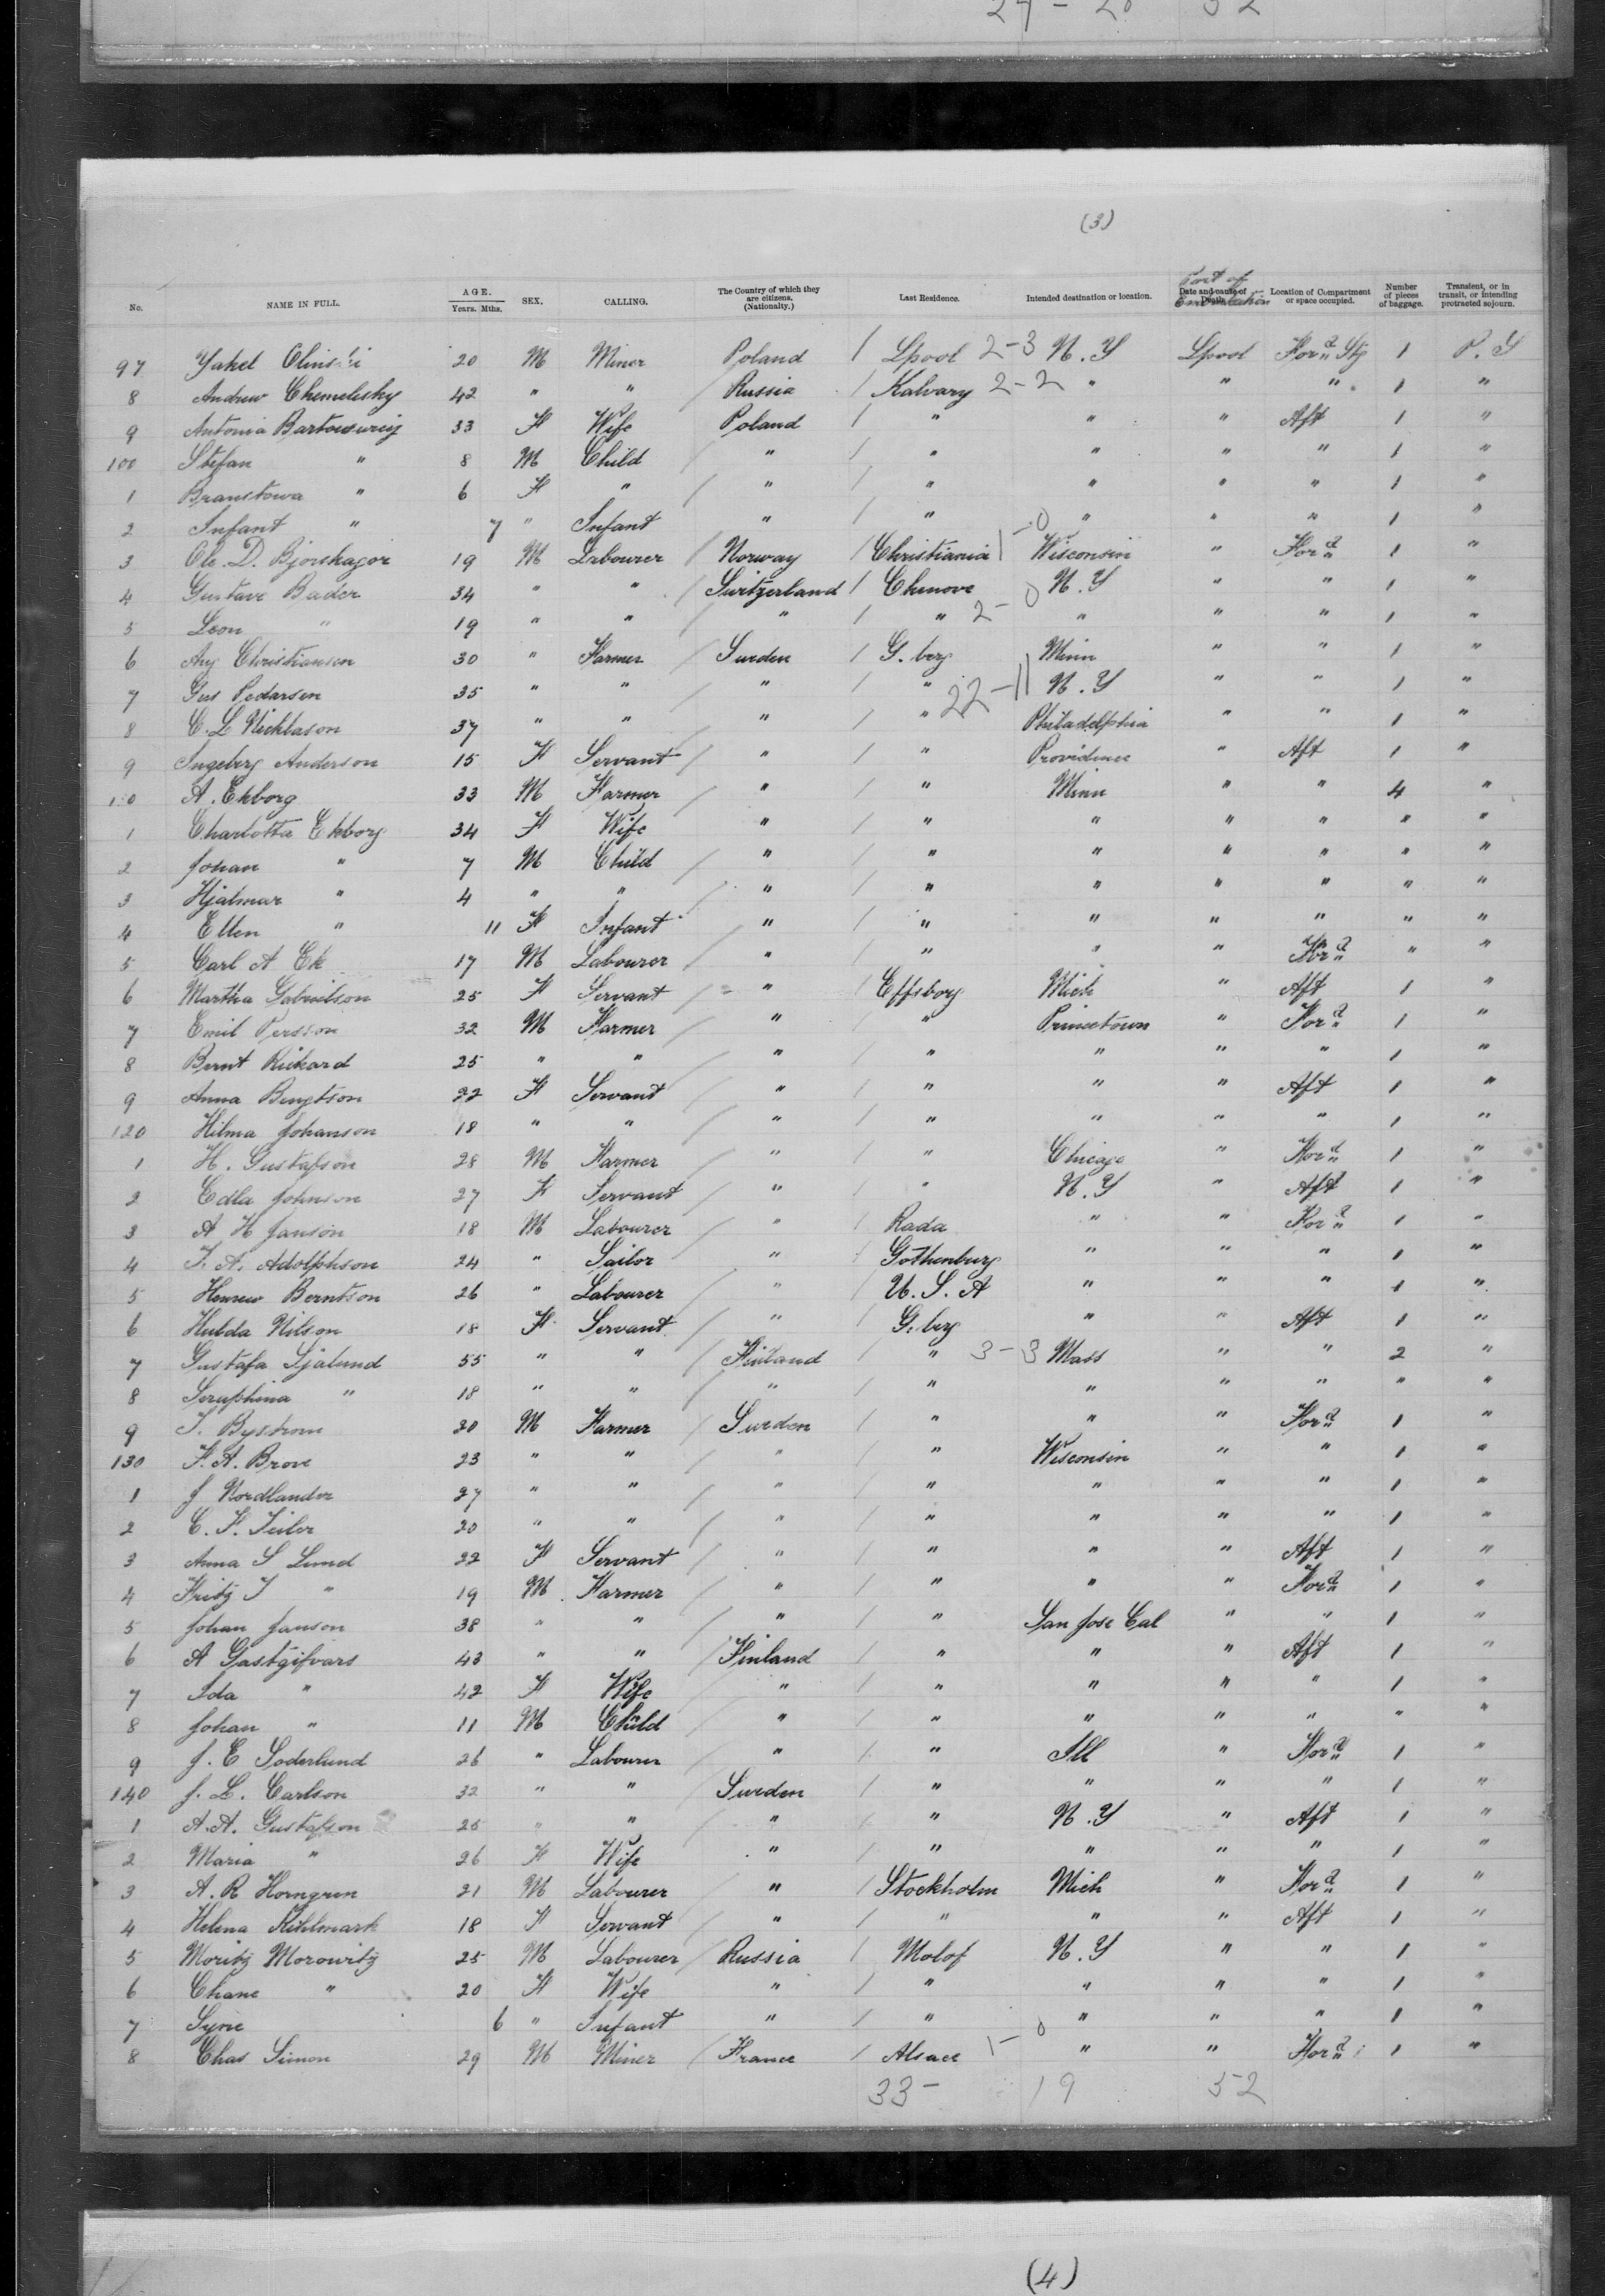 (3)
Port of
Embarkation
No. NAME IN FULL. AGE. Years. Mths. SEX. CALLING. The Country of which they are citizens, (Nationality.) Last Residence. Intended destination or location. Date and cause of Death. Location of Compartment or space occupied. Number of pieces of baggage. Transient, or in transit, or intending protracted sojourn.
97 Yakel 20 M Miner Poland / Lpool 2-3 N. Y Lpool For'd Stg 1 P. S
8 Andrew Chemelisky 42 " " / Russia / Kalvary 2-2 " " " 1 "
9 Antonia 33 F Wife Poland / " " " Aft 1 "
100 Stefan " 8 M Child / " / " " " " 1 "
1 Branstowa " 6 F " / " / " " " " 1 "
2 Infant " 7 " Infant " / " " " " 1 "
3 Ole. D. Bjorshagor 19 M Labourer / Norway / Christiania 1-0 Wisconsin " For'd 1 "
4 Gustave Bader 34 " " / Switzerland / Chenove N. Y " " 1 "
5 Leon " 19 " " / " / " 2-0 " " " 1 "
6 Aug Christiansen 30 " Farmer / Sweden / G. berg Minn " " 1 "
7 Gus Pedarsen 35 " " / " / " 22-11 N. Y " " 1 "
8 C. L Nicklason 37 " " / " / " Philadelphia " " 1 "
9 Ingeberg Anderson 15 F Servant / " / " Providence " Aft 1 "
110 A. Ekborg 33 M Farmer / " / " Minn " " 4 "
1 Charlotta Ekborg 34 F Wife / " / " " " " " "
2 Johan " 7 M Child / " / " " " " " "
3 Hjalmar " 4 " " / " / " " " " " "
4 Ellen " 11 F Infant / " / " " " " " "
5 Carl A Ek 17 M Labourer / " / " " " For'd " "
6 Martha Gabrielson 25 F Servant / " / Effsborg Mich " Aft 1 "
7 Emil Persson 32 M Farmer / " / " Princetown " For'd 1 "
8 Bernt Rickard 25 " " / " / " " " " 1 "
9 Anna Bengtson 22 F Servant / " / " " " Aft 1 "
120 Hilma Johanson 18 " " / " / " " " " 1 "
1 H. Gustafson 28 M Farmer / " / " Chicago " For'd 1 "
2 Edla Johnson 27 F Servant / " / " N. Y " Aft 1 "
3 A H Janson 18 M Labourer / " / Rada " " For'd 1 "
4 J. A. Adolphson 24 " Sailor / " / Gothenburg " " " 1 "
5 Berntson 26 " Labourer / " / U. S. A " " " 1 "
6 Hulda Nilson 18 F Servant / " / G. berg " " Aft 1 "
7 Gustafa Sjalund 55 " " / Finland / " 3-3 Mass " " 2 "
8 Seruphina " 18 " " / " / " " " " " "
9 J. Bystrom 20 M Farmer / Sweden / " " " For'd 1 "
130 F. A. Brove 23 " " / " / " Wisconsin " " 1 "
1 J Nordlander 27 " " / " / " " " " 1 "
2 C. F. 20 " " / " / " " " " 1 "
3 Anna S Lund 22 F Servant / " / " " " Aft 1 "
4 Fritz J " 19 M Farmer / " / " " " For'd 1 "
5 Johan Janson 38 " " / " / " San Jose Cal " " 1 "
6 A Gastgifvars 43 " " / Finland / " " " Aft 1 "
7 Ida " 42 F Wife / " / " " " " 1 "
8 Johan " 11 M Child / " / " " " " " "
9 J. E Soderlund 26 " Labourer / " / " Ill " For'd 1 "
140 J. L. Carlson 32 " " / Sweden / " " " " 1 "
1 A. A. Gustafson 25 " " / " / " N. Y " Aft 1 "
2 Maria " 26 F Wife " / " " " " 1 "
3 A. R Horngren 21 M Labourer / " / Stockholm Mich " For'd 1 "
4 Helena Kihlmark 18 F Servant / " / " " " Aft 1 "
5 Moritz Morowitz 25 M Labourer / Russia / Molof N. Y " " 1 "
6 Chane " 20 F Wife / " / " " " " 1 "
7 Syrie 6 " Infant / " / " " " " 1 "
8 Chas Simon 29 M Miner / France / Alsace 1-0 " " For'd 1 "
33- 19 52
(4)